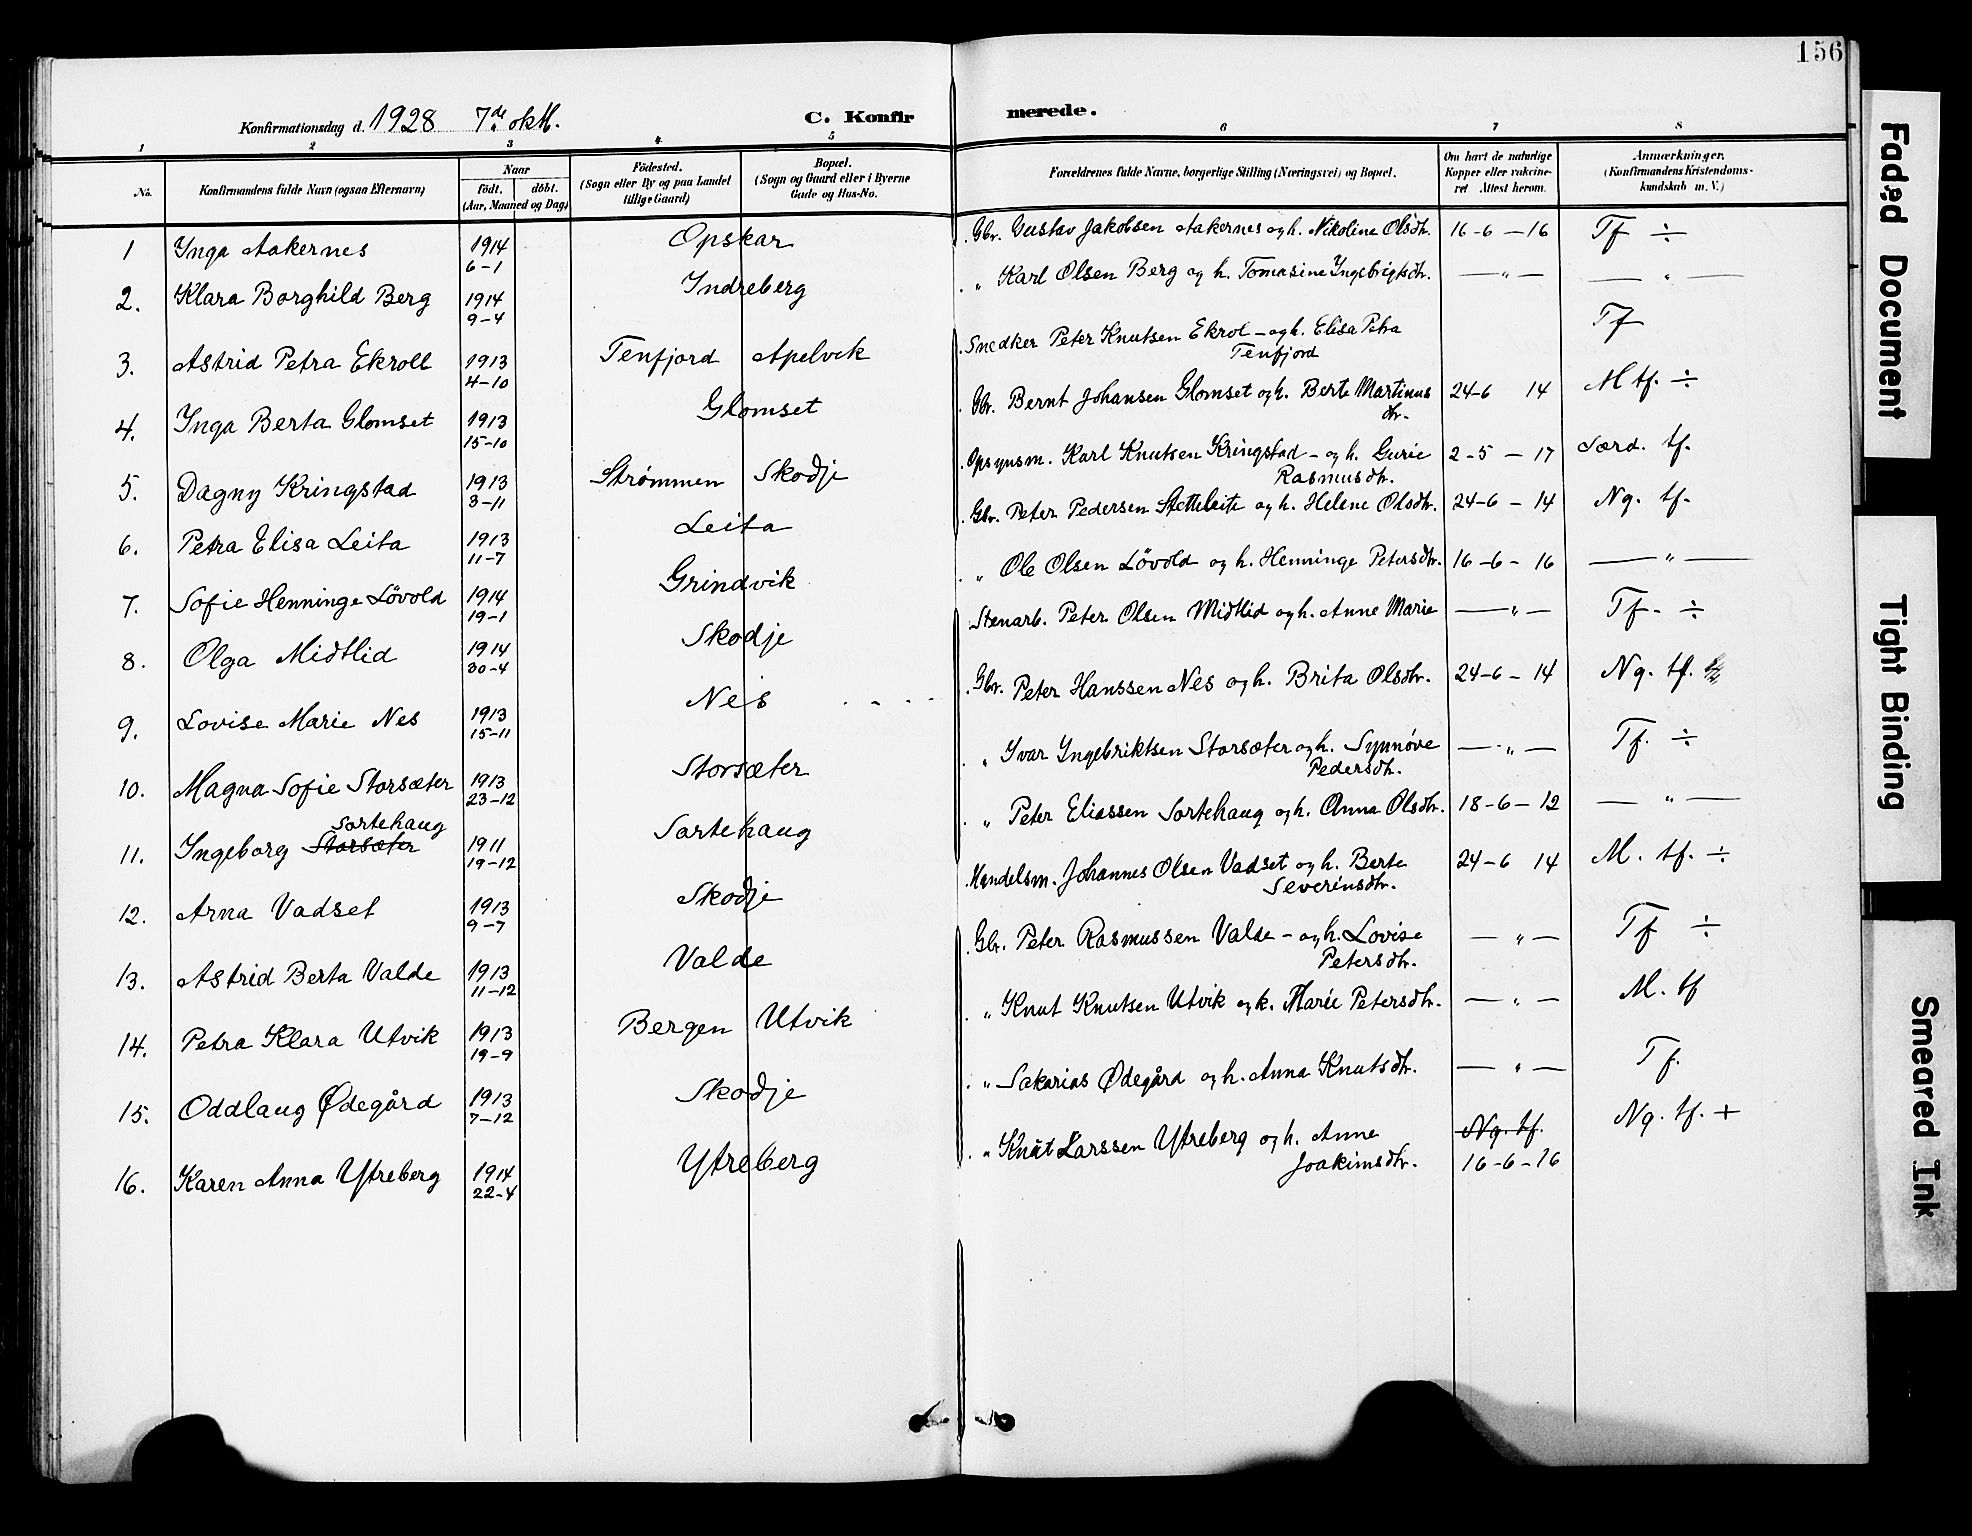 156
Konfirmationsdag d. 1928 7de. oktb.
C. Konfirmerede.
1 2 3 4 5 6 7 8
No.
Konfirmandens fulde Navn (ogsaa Efternavn)
Naar
födt. döbt.
(Aar, Maaned og Dag)
Födested.
(Sogn eller By og paa Landet
tillige Gaard)
Bopæl.
(Sogn og Gaard eller i Byerne
Gade og Hus-No.
Forældrenes fulde Navne, borgerlige Stilling (Næringsvei) og Bopæl.
Om havt de naturlige
Kopper eller vakcine-
ret Attest herom.
Anmærkninger.
(Konfirmandens Kristendoms-
kundskab m. V.)
1 Inga Aakernes 1914 6-1 Opskar Gbr. Gustav Jakobsen Aakernes og h. Nikoline Olsdtr. 16-6-16 Tf ÷
2. Klara Borghild Berg 1914 9-4 Indreberg " Karl Olsen Berg og h. Tomasine Ingebrigtsdtr. — " — — " —
3. Astrid Petra Ekroll 1913 4-10 Tenfjord Apelvik Snedker Peter Knutsen Ekrol - og h. Elisa Petra Tf
Tenfjord
4. Inga Berta Glomset 1913 15-10 Glomset Gbr. Bernt Johansen Glomset og h. Berte Martinus 24-6 14 M tf. ÷
dtr.
5. Dagny Kringstad 1913 3-11 Strømmen Skodje Opsynsm. Karl Knutsen Kringstad - og h. Gurie 2-5-17 Særd. tf.
Rasmusdtr.
6. Petra Elisa Leita 1913 11-7 Leita Gbr. Peter Pedersen Stetteleite og h. Helene Olsdtr. 24-6-14 Ng. tf.
7. Sofie Henninge Lövold 1914 19-1 Grindvik " Ole Olsen Lövold og h. Henninge Petersdtr. 16-6-16 — " —
8. Olga Midtlid 1914 30-4 Skodje Stenarb. Peter Olsen Midtlid og h. Anne Marie — " — Tf. ÷
9. Lovise Marie Nes 1913 15-11 Nes Gbr. Peter Hanssen Nes og h. Brita Olsdtr. 24-6-14 Ng. tf.
10. Magna Sofie Storsæter 1913 23-12 Storsæter " Ivar Ingebriktsen Storsæter og h. Synnøve — " — Tf. ÷
Pedersdtr.
Sortehaug
11. Ingeborg Storsæter 1911 19-12 Sortehaug " Peter Eliassen Sortehaug og h. Anna Olsdtr. 18-6-12 — " —
12. Arna Vadset 1913 9-7 Skodje Handelsm. Johannes Olsen Vadset og h. Berte 24-6 14 M. tf. ÷
Severinsdtr.
13. Astrid Berta Valde 1913 11-12 Valde Gbr. Peter Rasmussen Valde - og h. Lovise — " — Tf ÷
Petersdtr.
14. Petra Klara Utvik 1913 19-9 Bergen Utvik " Knut Knutsen Utvik og h. Marie Petersdtr. — " — M. tf
15. Oddlaug Ødegård 1913 7-12 Skodje " Sakarias Ødegård og h. Anna Knutsdtr. — " — Tf.
16. Karen Anna Ytreberg 1914 22-4 Ytreberg " Knut Larssen Ytreberg og h. Anne Ng. tf. Ng. tf. +
Joakimsdtr. 16-6-16
Faded Document
Tight Binding
Smeared Ink